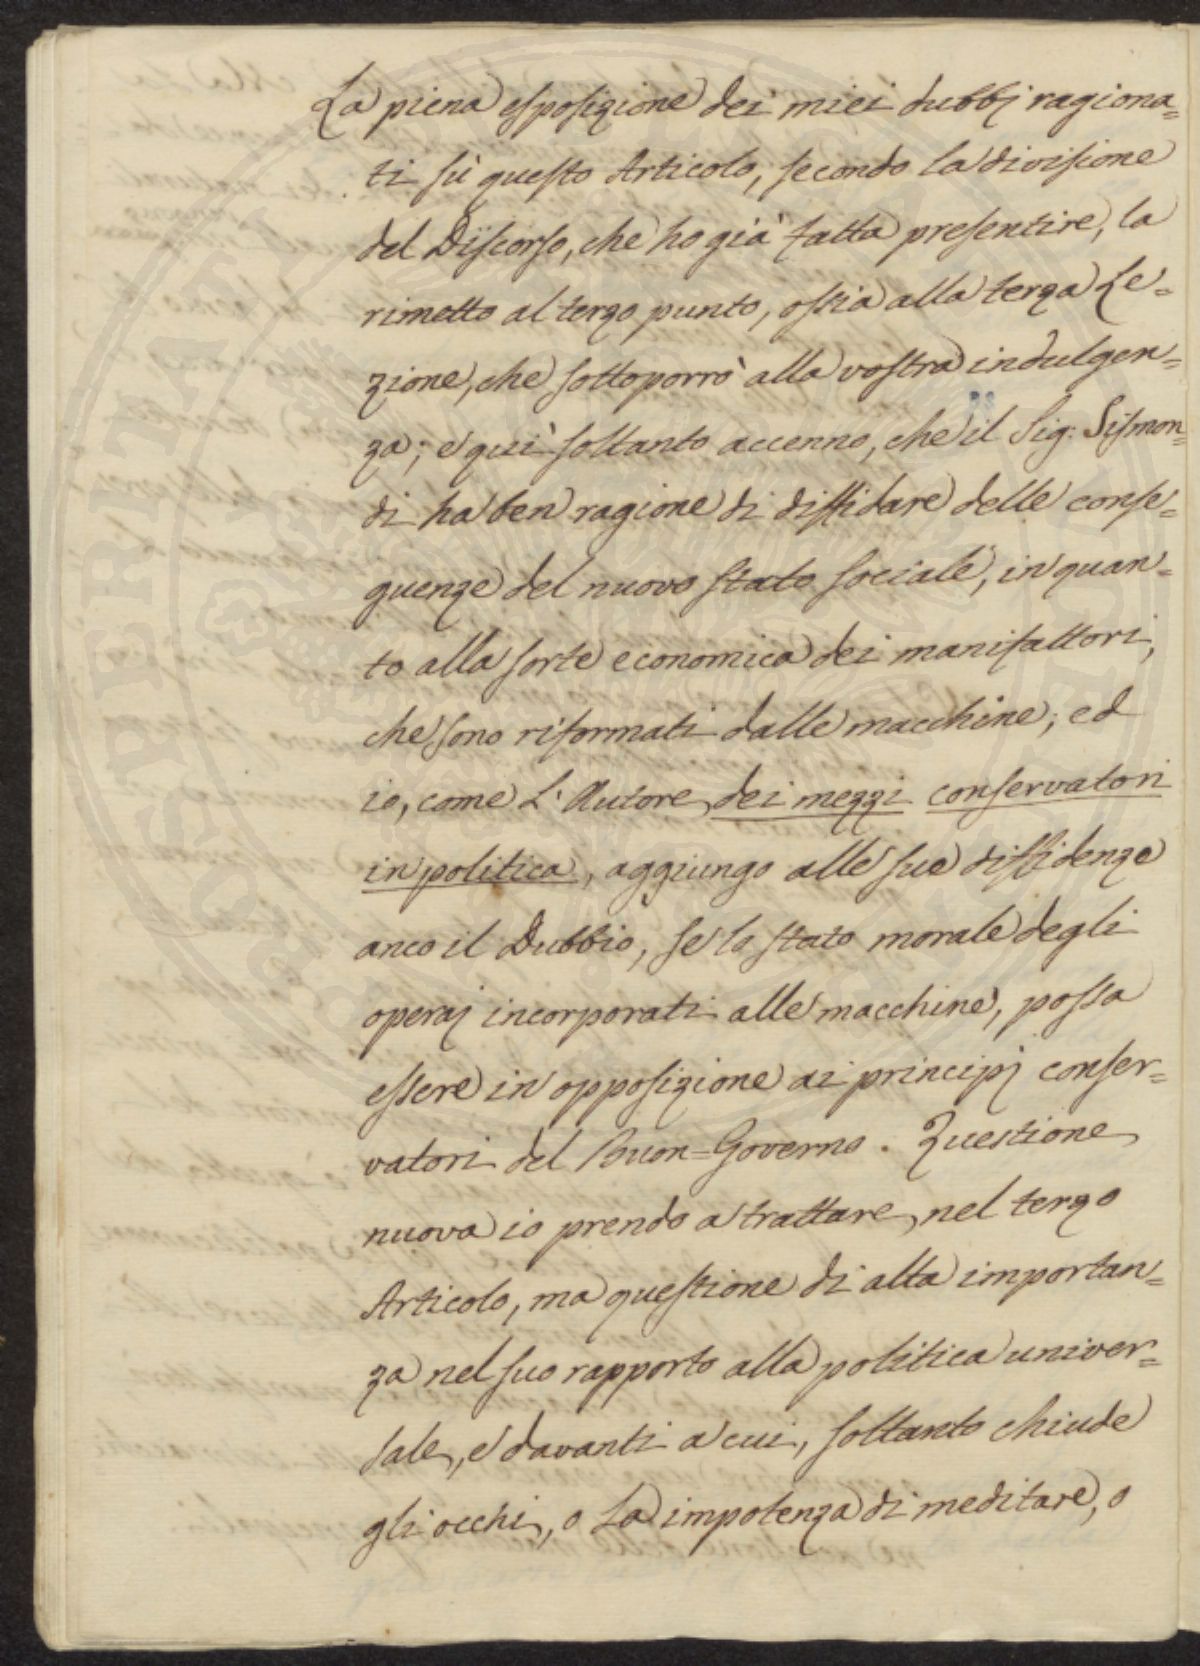 La piena esposizione dei miei dubbj ragiona=
ti sù questo Articolo, secondo la divisione
del Discorso, che ho già fatta presentire, la
rimetto al terzo punto, ossia alla terza Le=
zione, che sottoporrò alla vostra indulgen=
za; e quì soltanto accenno, che il Sig: Sismon=
di ha ben ragione di diffidare delle conse=
guenze del nuovo stato sociale, in quan=
to alla sorte economica dei manifattori,
che sono riformati dalle macchine; ed
io, come L'Autore dei mezzi conservatori
in politica, aggiungo alle sue diffidenze
anco il Dubbio, se lo stato morale degli
operaj incorporati alle macchine, possa
essere in opposizione ai principj conser=
vatori del Buon=Governo. Questione
nuova io prendo a trattare, nel terzo
Articolo, ma questione di alta importan=
za nel suo rapporto alla politica univer=
sale, e davanti a cui, soltanto chiude
gli occhi, o La impotenza di meditare, o
PROSPERITATI PUBLICAE AUGENDAE